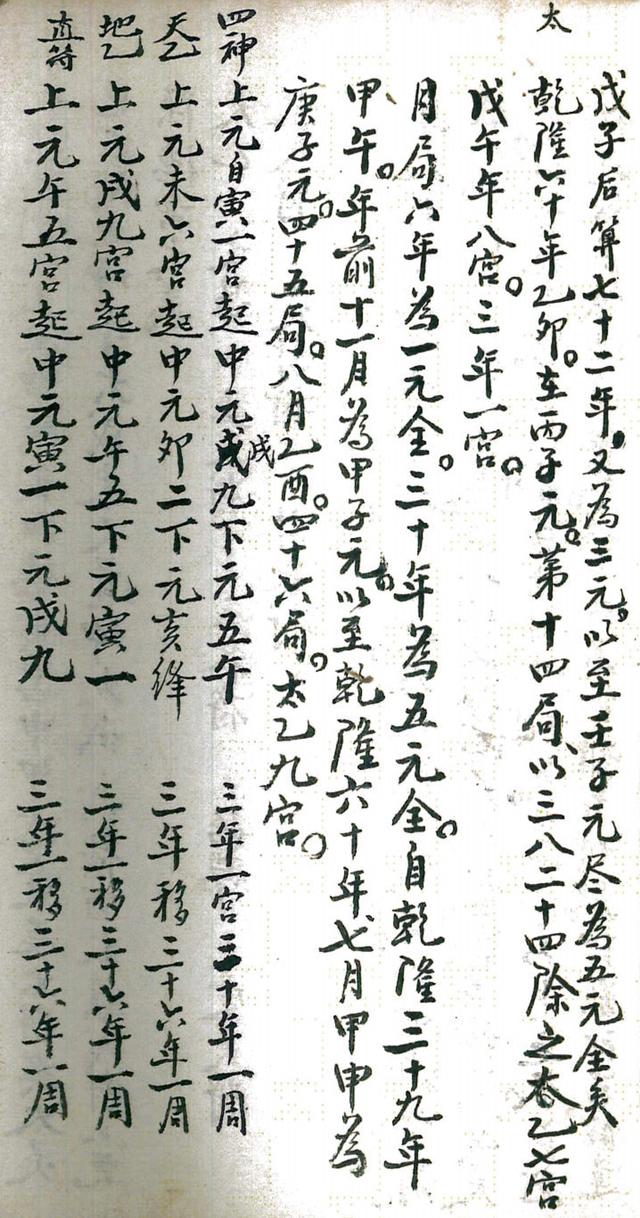 太
戊子后算七十二年。又為三元。以至壬子元尽為五元全矣
乾隆六十年乙卯。在丙子元。第十四局、以三八二十四除之太乙七宮
戊午年八宮。三年一宮。
月局六年為一元全。三十年為五元全。自乾隆三十九年
甲午。年前十一月為甲子元。以至乾隆六十年、七月甲申為
庚子元。四十五局。八月乙酉。四十六局。太乙九宮。
四神上元自寅一宮起中元戌九下元五午 三年一宮三十年一周
天乙上元未六宮起中元卯二下元亥絳 三年移三十六年一周
地乙上元戌九宮起中元午五下元寅一 三年一移三十六年一周
直符上元午五宮起中元寅一下元戌九 三年一移三十六年一周